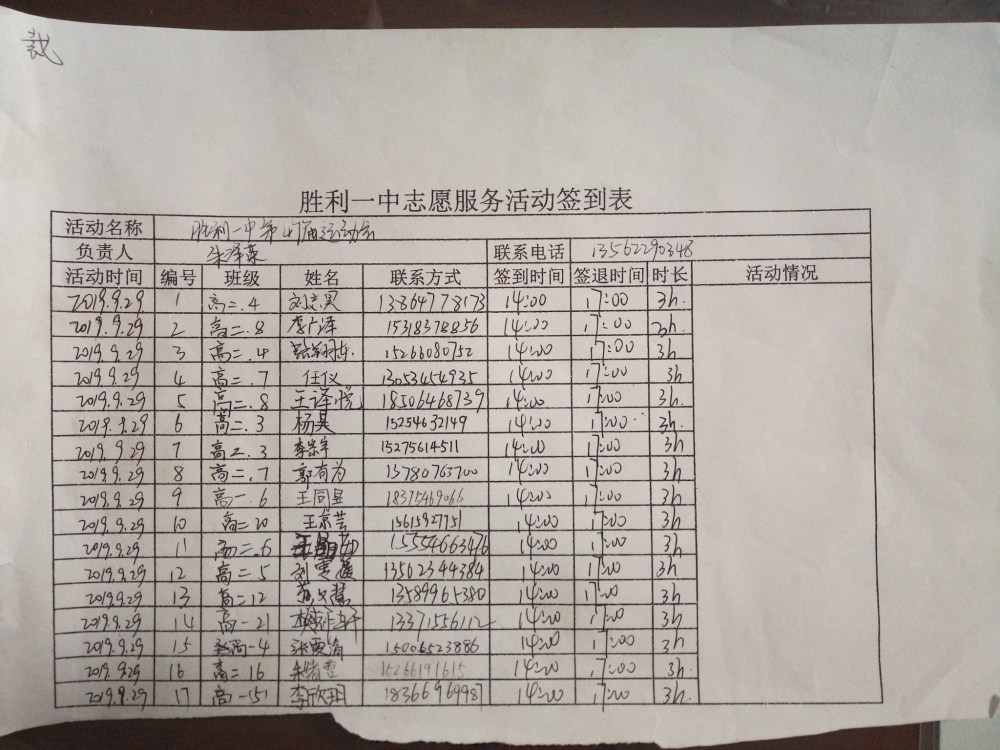 裁
胜利一中志愿服务活动签到表
活动名称 胜利一中第47届运动会
负责人 朱泽豪 联系电话 13562290348
活动时间 编号 班级 姓名 联系方式 签到时间 签退时间 时长 活动情况
2019.9.29 1 高二.4 13864778173 14:00 17:00 3h.
2019.9.29 2 高二.8 李广泽 15318378856 14:00 17:00 3h.
2019.9.29 3 高二.4 15266080752 14:00 17:00 3h
2019.9.29 4 高二.7 任仪 13053454935 14:00 17:00 3h
2019.9.29 5 高二.8 王译悦 18506468739 14:00 17:00 3h.
2019.9.29 6 高二.3 杨昊 15254632149 14:00 17:00 3h.
2019.9.29 7 高二.3 李崇宇 15275614511 14:00 17:00 3h
2019.9.29 8 高二.7 郭有为 13780763700 14:00 17:00 3h
2019.9.29 9 高一.6 王同昱 18375469066 14:00 17:00 3h
2019.9.29 10 高二20 王京芸 15615927751 14:00 17:00 3h
2019.9.29 11 高二.6 15554663476 14:00 17:00 3h
2019.9.29 12 高二.5 刘雯蕴 13562344384 14:00 17:00 3h
2019.9.29 13 高二12 13589965380 14:00 17:00 3h
2019.9.29 14 高一21 13371556112 14:00 17:00 3h
2019.9.29 15 高一4 张霞清 15006523886 14:00 17:00 3h
2019.9.29 16 高二16 15266191615 14:00 17:00 3h.
2019.9.29 17 高一15 李欣玥 18366969987 14:00 17:00 3h.